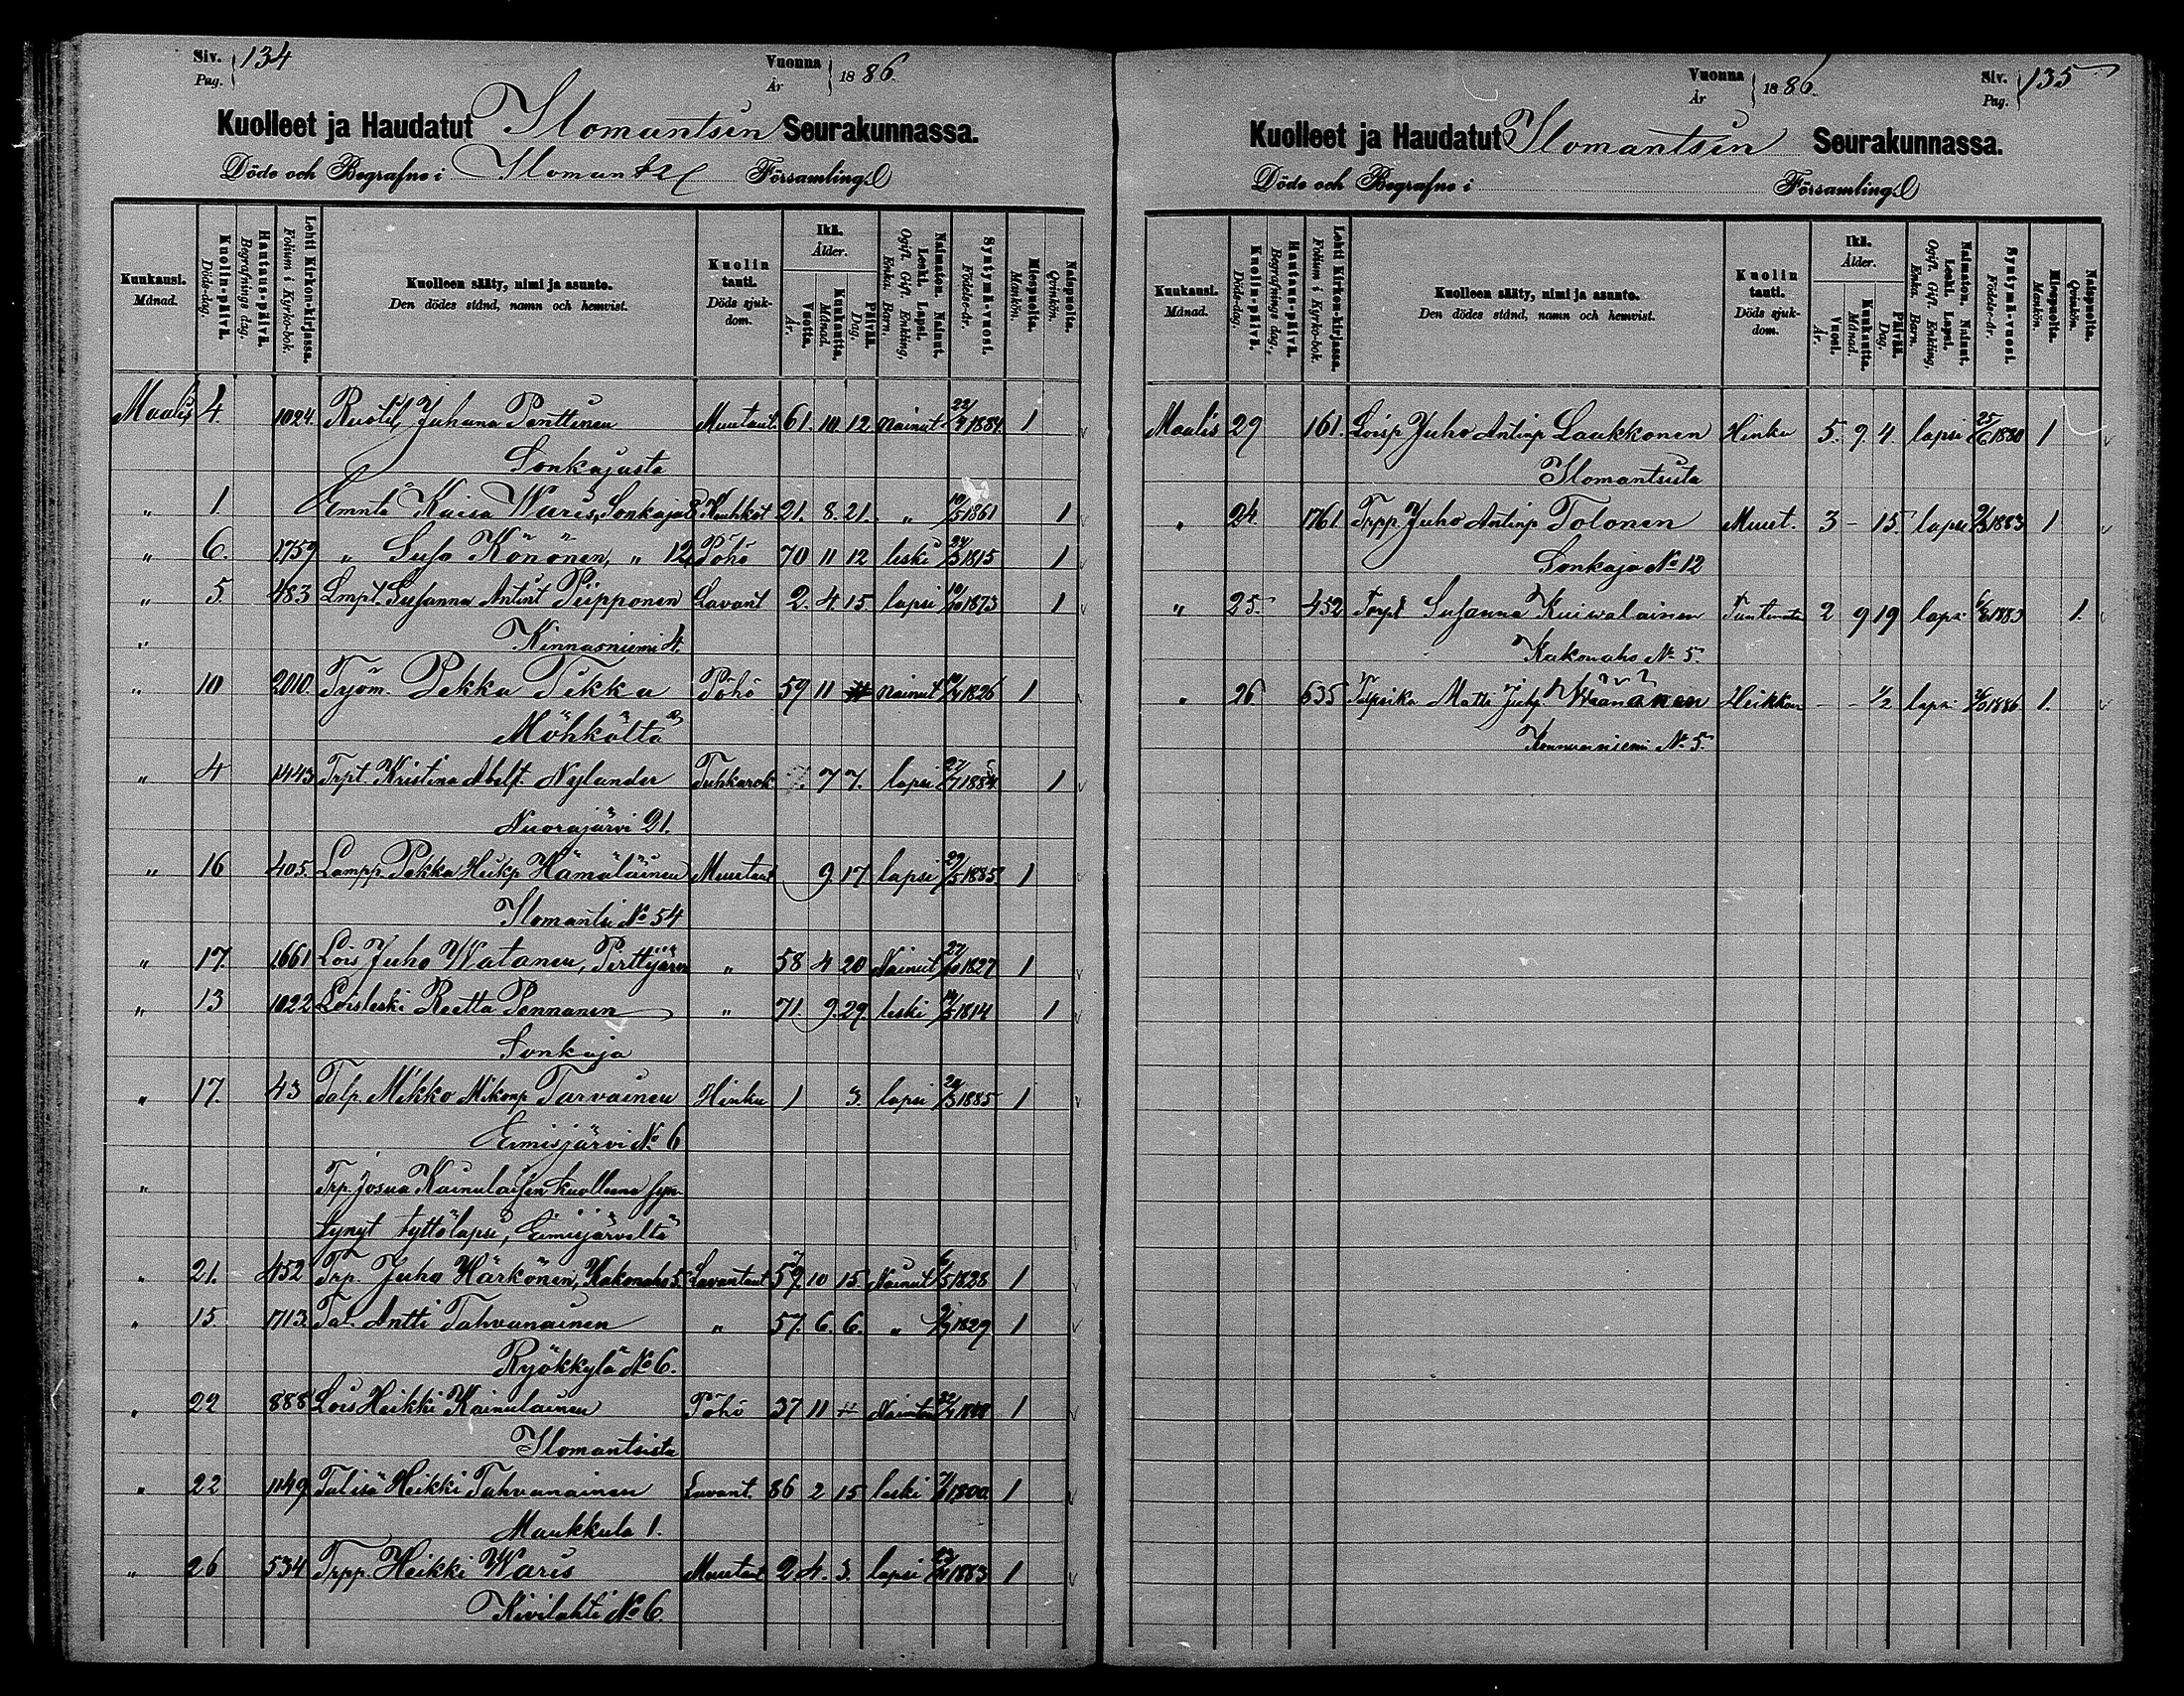 Siv. Pag. 134
Vuonna År 1886.
Kuolleet ja Haudatut Ilomantsin Seurakunnassa.
Döde och Begrafne i Ilomantsi Församling
Kuukausi. Månad.
Kuolin-päivä. Döds-dag.
Hautaus-päivä. Begrafnings dag.
Lehti Kirkon-kirjassa. Folium i Kyrko-bok.
Kuolleen sääty, nimi ja asunto. Den dödes stånd, namn och hemvist.
Kuolin tauti. Döds sjukdom.
Ikä. Ålder.
Vuotta. År.
Kuukautta. Månad.
Päivää. Dag.
Naimaton. Nainut. Leski. Lapsi. Ogift. Gift. Enkling, Enka. Barn.
Syntymä-vuosi. Födelse-år.
Miespuolta. Mankön.
Naispuolta. Qvinkön.
Maalis 4. 1024. Ruotil. Juhana Penttinen Muutaut. 61. 10. 12. nainut 22/4 1884 1
Sonkajasta
" 1 Emntä Kaisa Waris, Sonkaja 8 Keuhkot 21. 8. 21. " 10/5 1861 1
" 6. 1759 " Susa Könönen, " 12 Pöhö 70 11 12 leski 24/3 1815 1
" 5. 483 Lmpt. Susanna Antint Piipponen Lavant 2. 4. 15. lapsi 19/10 1873 1
" Kinnasniemi 4.
" 10 2010. Työm. Pekka Tikka Pöhö 59 11 nainut 1826 1
Möhkältä
" 4 1443 Trpt. Kristina Abelt. Nylander Tuhkarok 7. 7 7. lapsi 27/7 1884 1
Nuorajärvi 21.
" 16 405. Lampp. Pekka Heikp Hämäläinen Muutaut 9. 17 lapsi 29/5 1885. 1
Ilomantsi No 54
" 17. 1661 Lois Juho Watanen, Perttijärvi " 58 4 20 Nainut 27/10 1827 1
" 13 1022 Loisleski Reetta Pennanen " 71. 9. 29. leski 14/5 1814 1
Sonkaja
" 17. 43 Talp. Mikko Mikonp Tarvainen Hinku 1 3. lapsi 24/3 1885 1
Eimisjärvi No 6
" Trp. Josua Kainulaisen kuolleena syn-
tynyt tyttölapsi, Eimisjärveltä
" 21. 452 Trp. Juho Härkönen, Kakonaho 5. Lavantaut 57. 10 15. Nainut 6/5 1828 1
" 15. 1713. Tal. Antti Tahvanainen " 57. 6. 6. " 9/9 1829 1
Ryökkylä No 6.
" 22 888 Lois Heikki Kainulainen Pöhö 37 11 Naimaton 22/4 1848 1
Ilomantsista
" 22 1149 Talisä Heikki Tahvanainen Lavant. 86 2 15 leski 1800. 1
Maukkula 1.
" 26 534 Trpp. Heikki Waris Muutaut 2. 4. 3. lapsi 1883 1
Kivilahti No 6.
Vuonna År 1886.
Siv. Pag. 135
Kuolleet ja Haudatut Ilomantsin Seurakunnassa.
Döde och Begrafne i Församling
Kuukausi. Månad.
Kuolin-päivä. Döds-dag.
Hautaus-päivä. Begrafnings dag.
Lehti Kirkon-kirjassa. Folium i Kyrko-bok.
Kuolleen sääty, nimi ja asunto. Den dödes stånd, namn och hemvist.
Kuolin tauti. Döds sjukdom.
Ikä. Ålder.
Vuosi. År.
Kuukautta. Månad.
Päivää. Dag.
Naimaton. Nainut. Leski. Lapsi. Ogift. Gift. Enkling, Enka. Barn.
Syntymä-vuosi. Födelse-år.
Miespuolta. Mankön.
Naispuolta. Qvinkön.
Maalis 29 161. Loisp Juho Antinp Laukkonen Hinku 5. 9. 4. lapsi 25/6 1880 1
Ilomantsista
" 24. 1761. Trpp. Juho Antinp Tolonen Muut. 3 - 15. lapsi 9/3 1883 1
Sonkaja No 12
" 25. 452 Torpt Susanna Kuiwalainen Tuntematon 2 9 19 lapsi 6/6 1883 1.
Kakonaho No 5.
" 26 635 Talpoika Matti Juhp. Wäänänen Heikkous - - 1/2 lapsi 1886 1.
No 5.